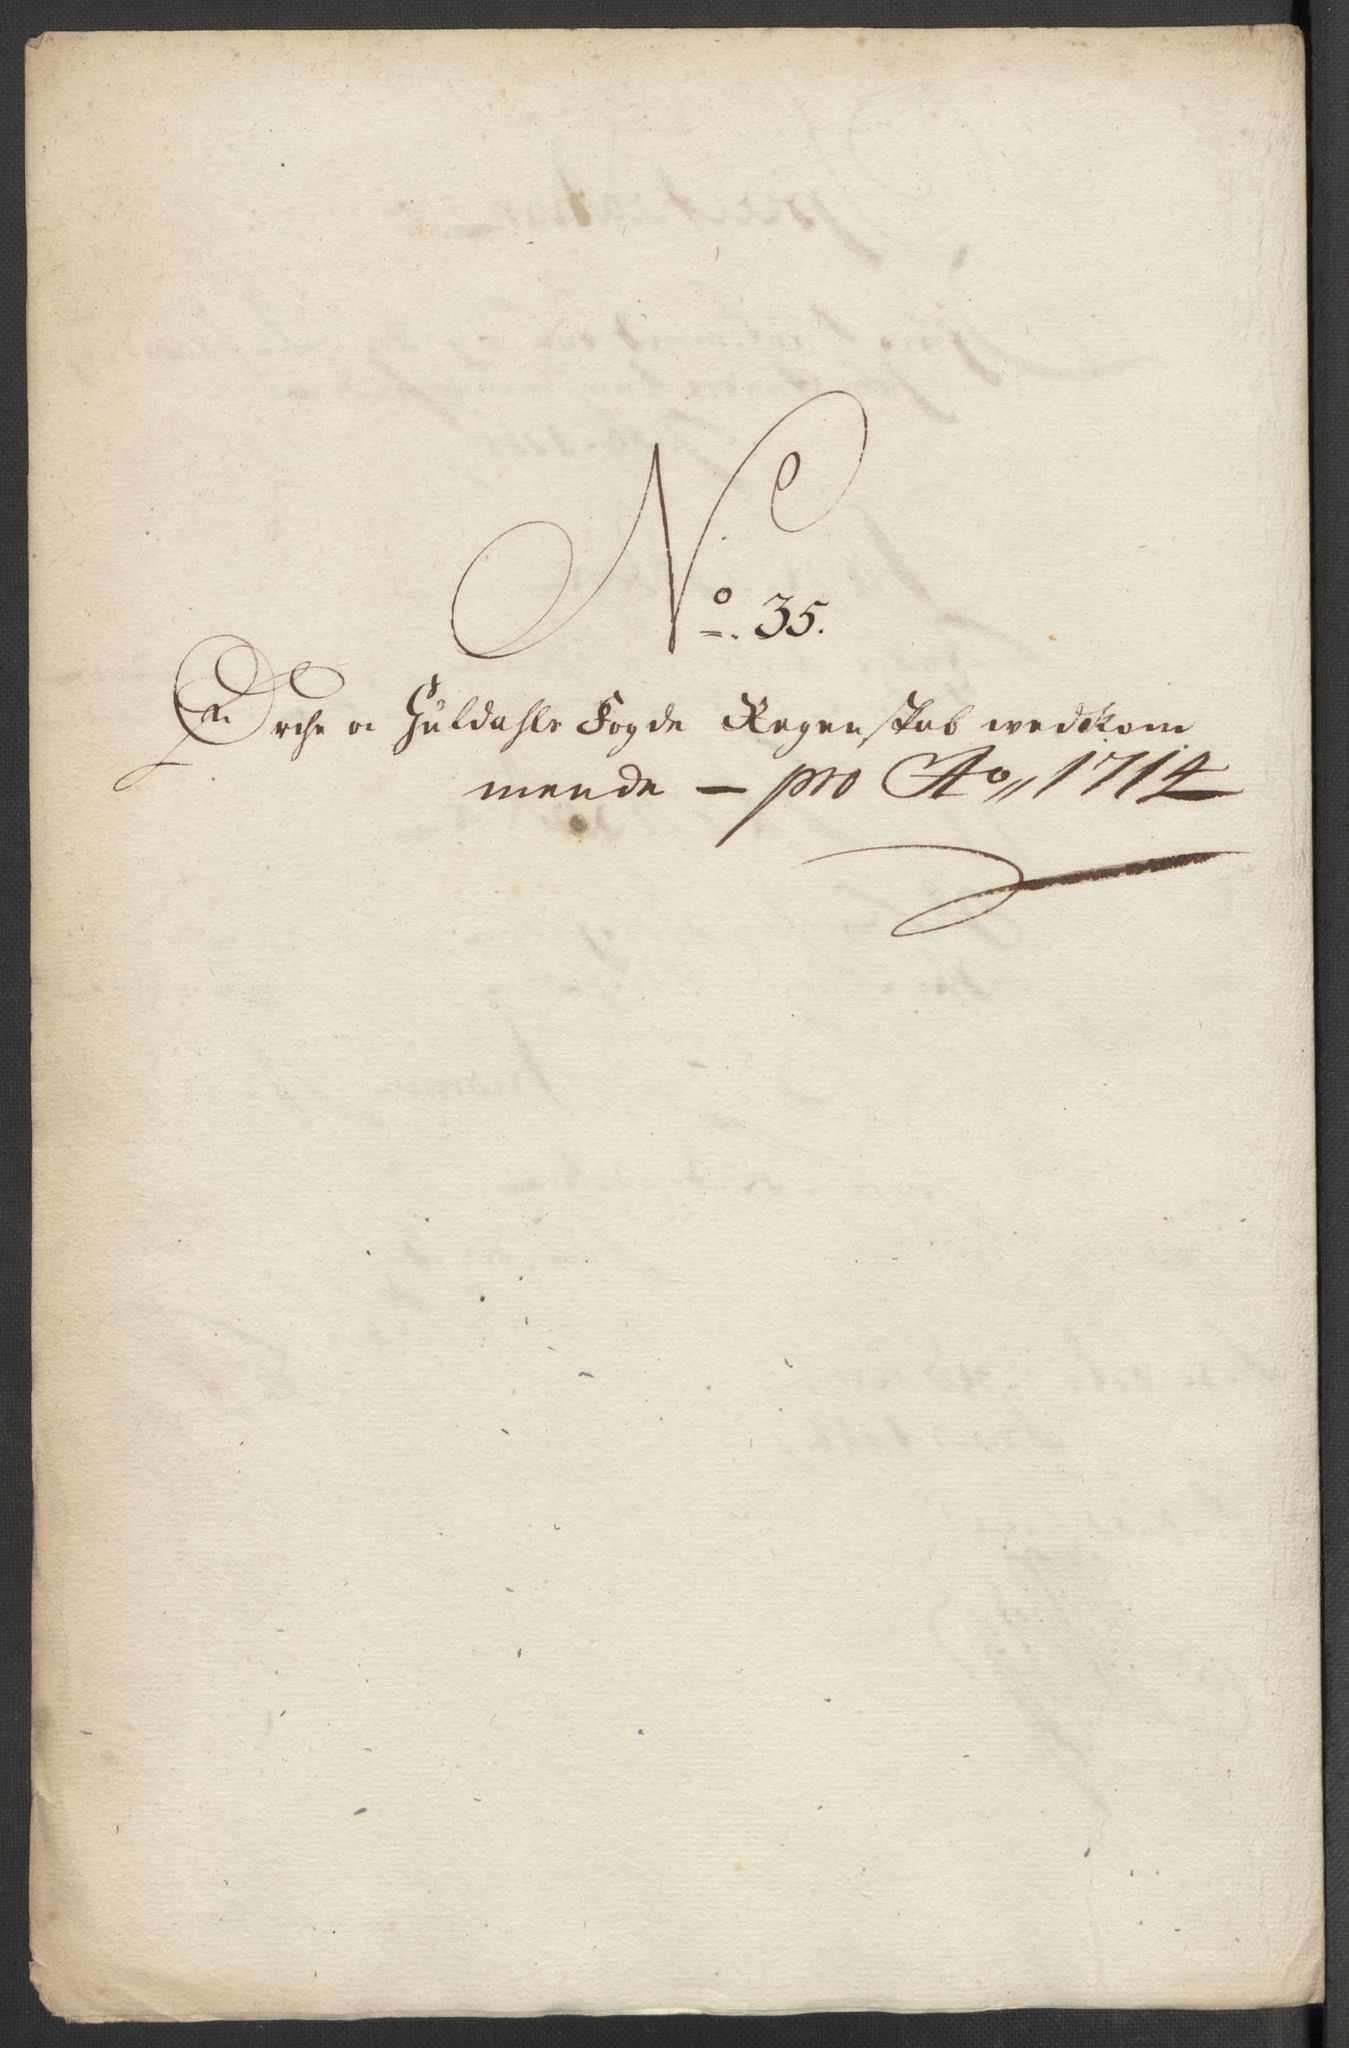 No. 35.
Orche og Guldahls Fogde Regenskab wedkom
mende — pro Ao, 1714